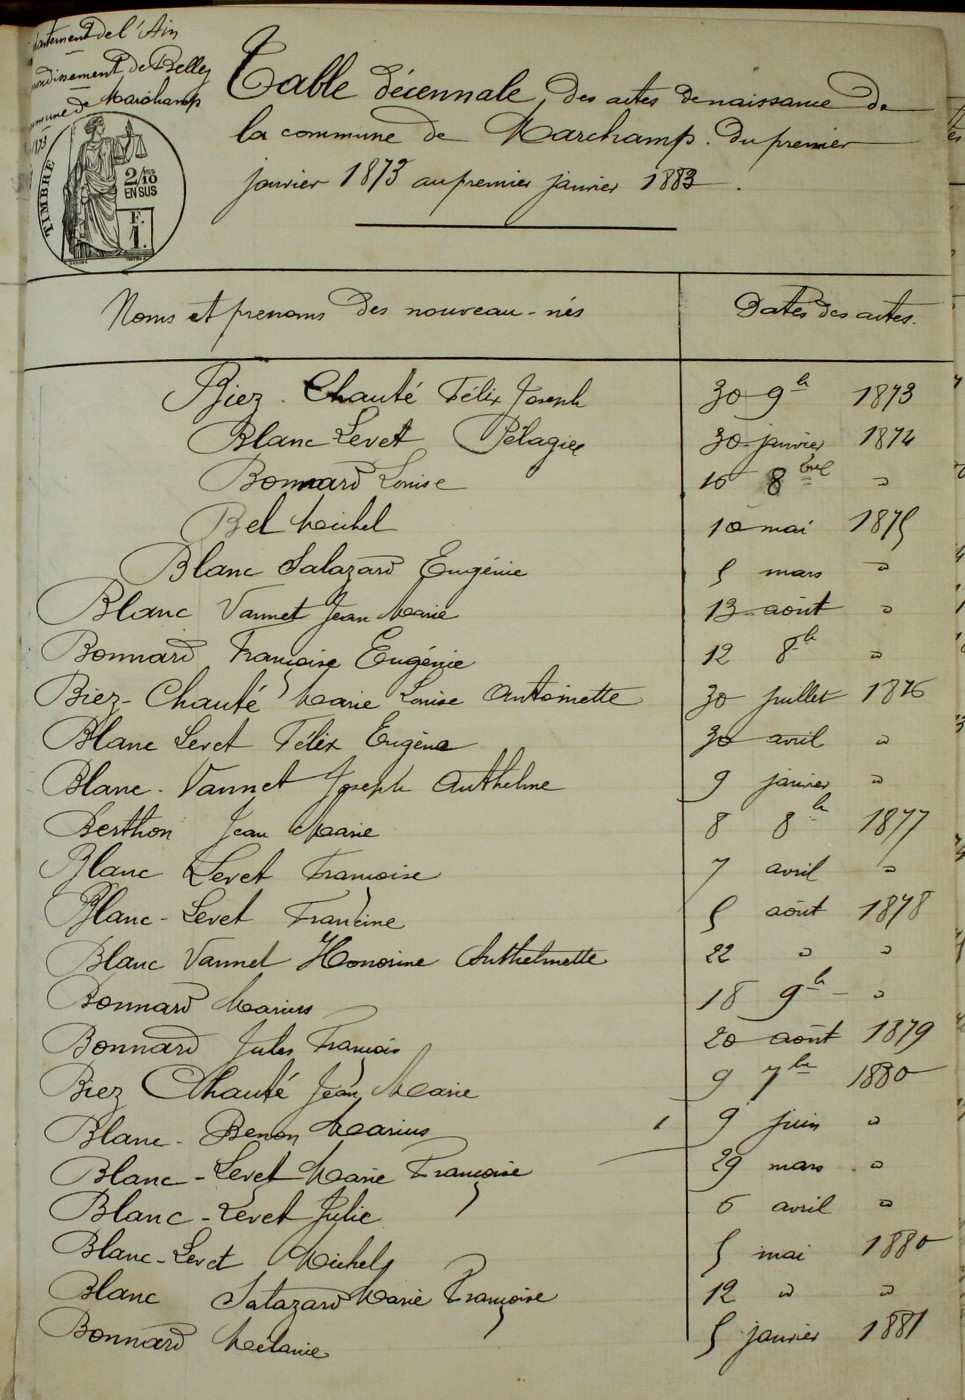 département de l'Ain
arrondissement de Belley
commune de Marchamp
TIMBRE
2/10
EN SUS
F.
1.
Table décennale des actes de naissance de
la commune de Marchamp. Du premier
janvier 1873 au premier janvier 1883.
Noms et prenoms des nouveau-nés Dates des actes.
Biez. Chauté Félix Joseph 30 9br 1873
Blanc Levet Pélagie 30 janvier 1874
Bonnard Louise 16 8bre "
Bel Michel 10 mai 1875
Blanc Salazard Eugénie 5 mars "
Blanc Vannet Jean Marie 13 août "
Bonnard Françoise Eugénie 12 8br "
Biez-Chauté Marie Louise Antoinette 30 juillet 1876
Blanc Levet Félix Eugène 30 avril "
Blanc-Vannet Joseph Anthelme 9 janvier "
Berthon Jean Marie 8 8br 1877
Blanc Levet Françoise 7 avril "
Blanc-Levet Francine 5 août 1878
Blanc Vannet Honorine Anthelmette 22 " "
Bonnard Marius 18 9br - "
Bonnard Jules François 20 août 1879
Biez Chauté Jean Marie 9 7br 1880
Blanc-Benon Marius 9 juin "
Blanc-Levet Marie Françoise 29 mars "
Blanc-Levet Julie 6 avril "
Blanc-Levet Michel 5 mai 1880
Blanc Salazard Marie Françoise 12 " "
Bonnard Mélanie 5 janvier 1881